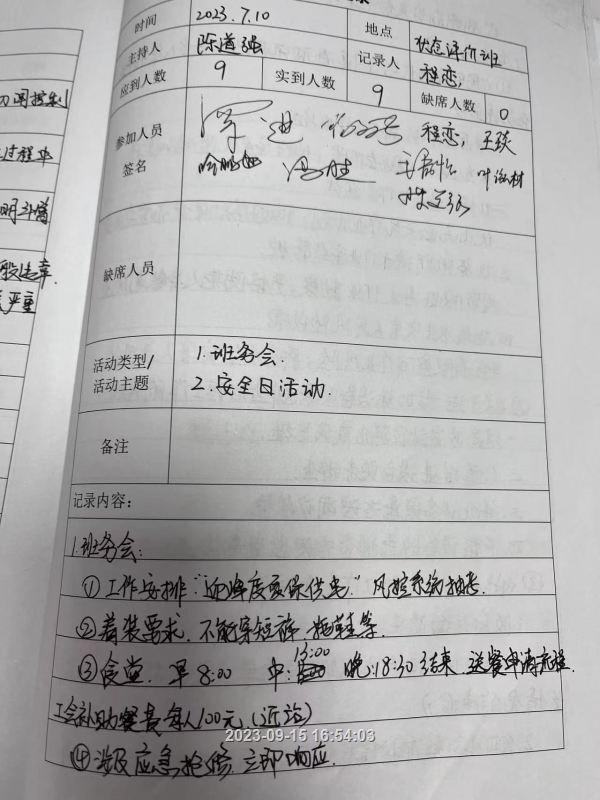 时间 2023.7.10 地点 状态评价班
主持人 陈道强 记录人 程恋
应到人数 9 实到人数 9 缺席人数 0
参加人员
签名
程恋, 王琰
缺席人员
活动类型/
活动主题
1.班务会.
2.安全日活动.
备注
记录内容:
1.班务会:
①工作安排:"迎峰度夏保供电" 风控系统抽考.
②着装要求. 不能穿短裤 拖鞋等.
③食堂. 早8:00 中:13:00 晚:18:30结束. 送餐申请
工会补助餐费每人100元.
④涉及应急抢修. 立即响应.
2023-09-15 16:54:03
过程中
严重